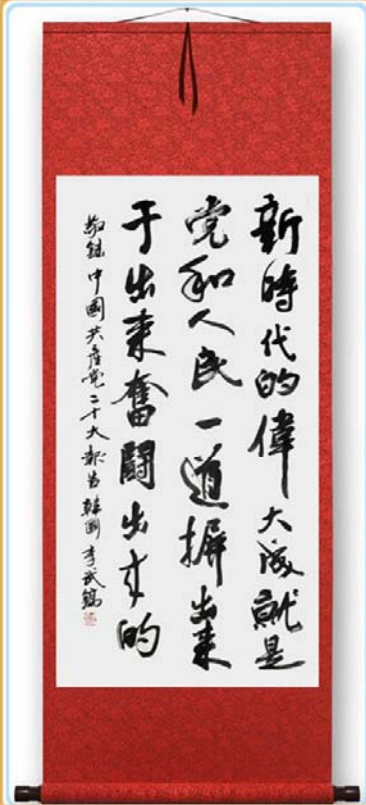 新時代的偉大成就是
党和人民一道摒出来
于出来奮闘出来的
敬録中國共産党二十大報告韓國李武鎬